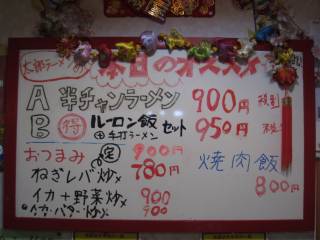 太郎ラーメン
本日のオススメ
A 半チャンラーメン 900円
B 得 ルーロン飯 セット 950円
+ 手打ラーメン
おつまみ 定 900円
ねぎレバ炒メ 780円
焼肉飯
800円
イカ+野菜炒メ 900
イカ・バター・炒メ 900